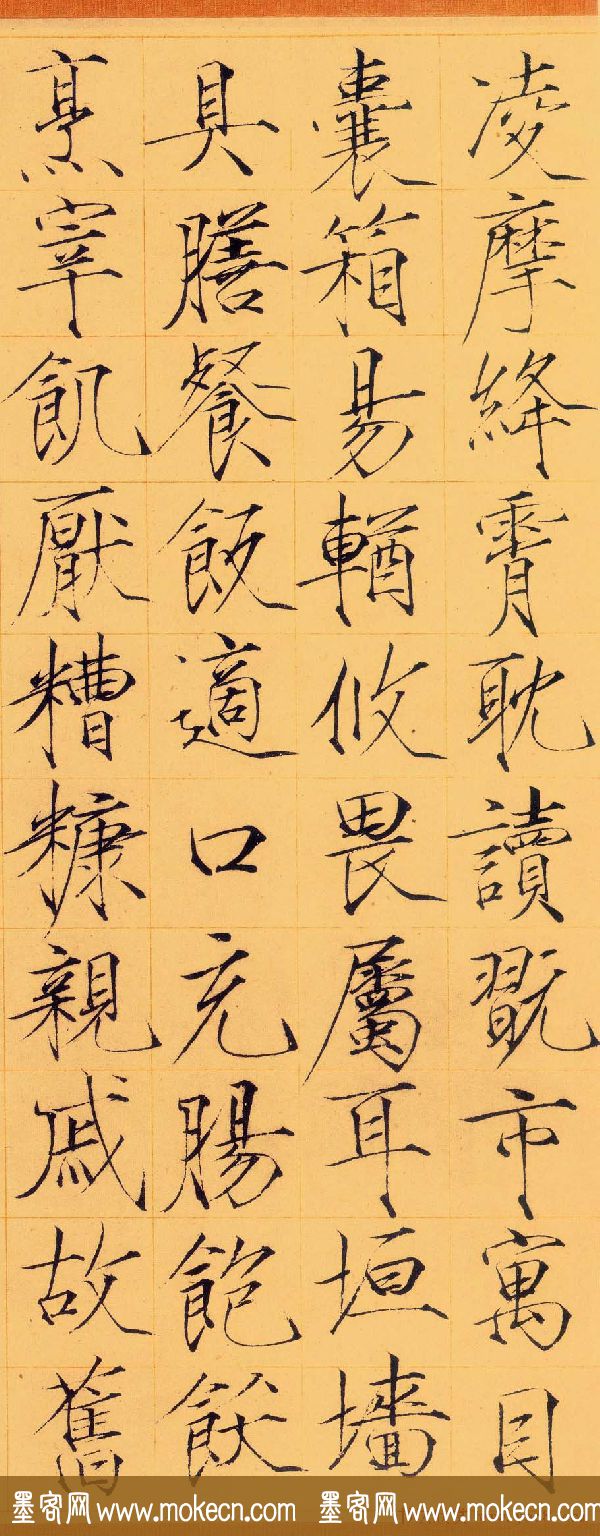 凌摩絳霄耽讀翫市寓目
囊箱易輶攸畏屬耳垣墻
具膳餐飯適口充腸飽飫
烹宰飢厭糟糠親戚故舊
墨客网 www.mokecn.com 墨客网 www.mokecn.com